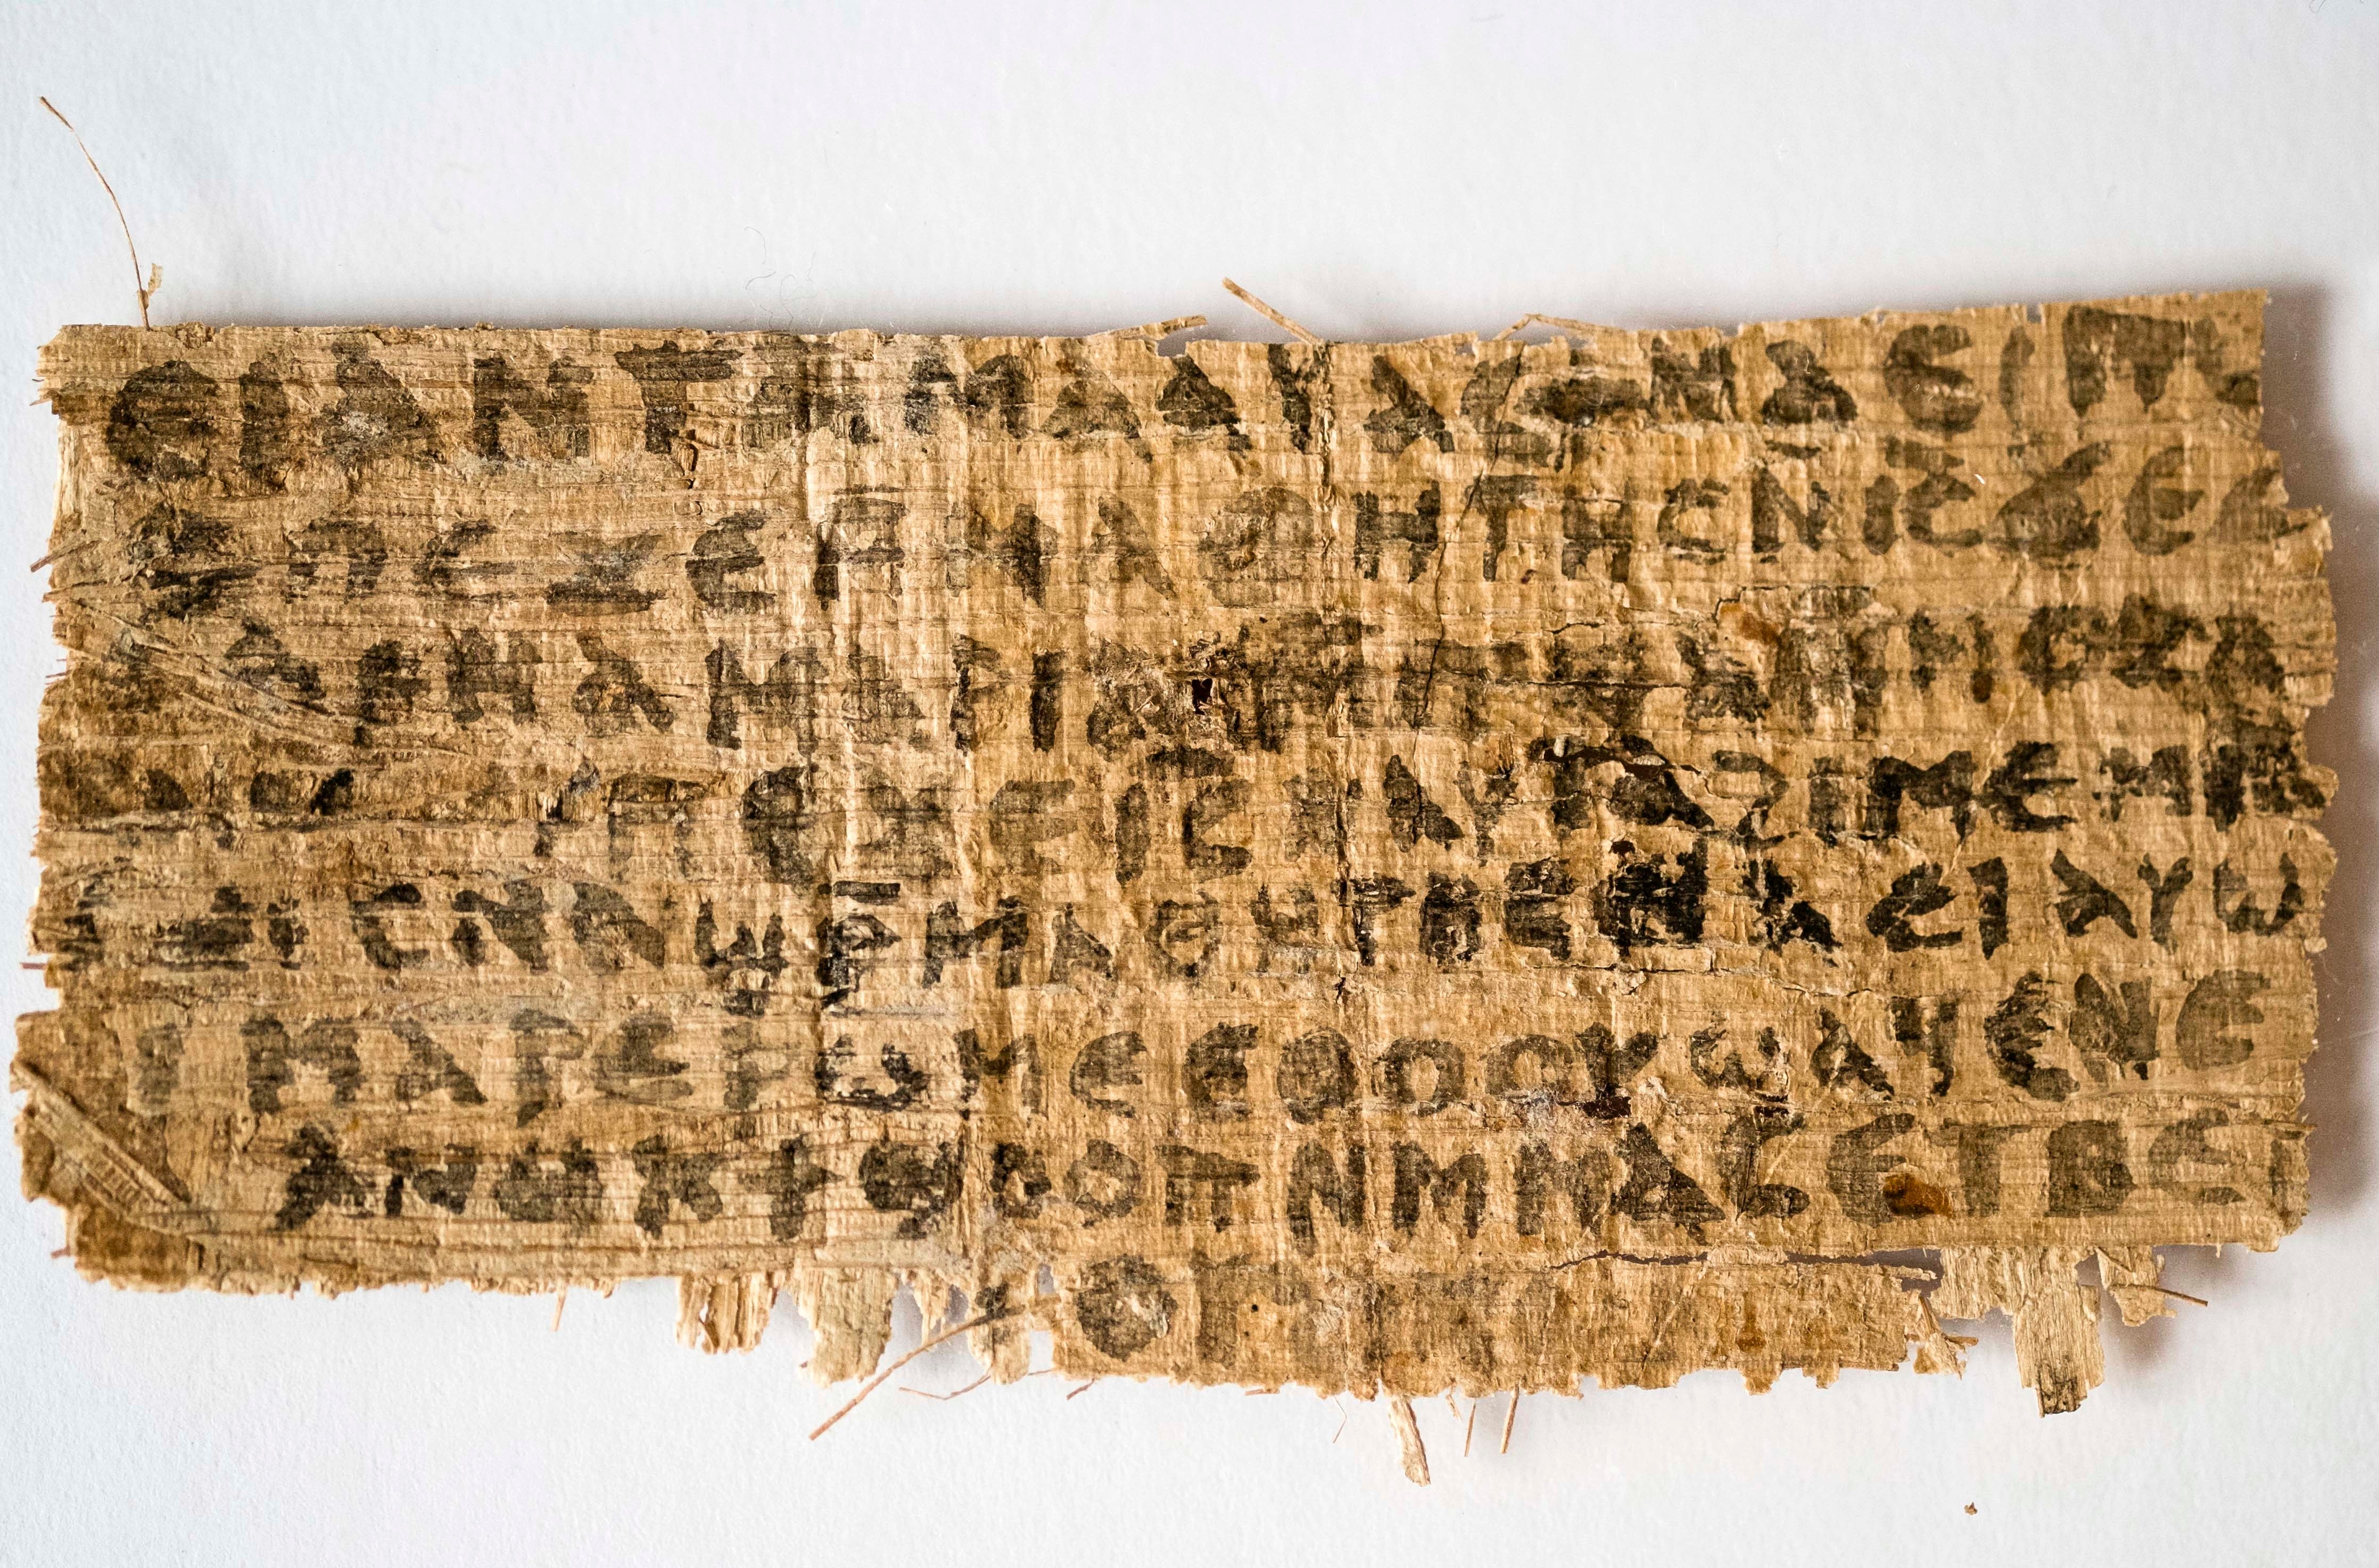 ⲉⲓ ⲁⲛ ⲧⲁⲙⲁⲁⲩ ⲁⲥϯ ⲛⲁⲉⲓ ⲡⲱ
ⲥ ⲡⲉϫⲉ ⲙⲙⲁⲑⲏⲧⲏⲥ ⲛⲓ̅ⲥ̅ ϫⲉ ⲥ
ⲁⲣⲛⲁ ⲙⲁⲣⲓⲁⲙ ⲙⲡϣⲁ ⲙⲙⲟⲥ ⲁ
ⲡⲉϫⲉ ⲓ̅ⲥ̅ ⲛⲁⲩ ⲧⲁϩⲓⲙⲉ ⲙⲛ
ⲥⲛⲁϣⲣ̅ⲙⲁⲑⲏⲧⲏⲥ ⲛⲁⲉⲓ ⲁⲩⲱ
ⲓ ⲙⲁⲣⲉⲣⲱⲙⲉ ⲉⲑⲟⲟⲩ ϣⲁϥⲉ ⲛⲉ
ⲁⲛⲟⲕ ϯϣⲟⲟⲡ ⲛⲙⲙⲁⲥ ⲉⲧⲃⲉ ⲡ
ⲟⲩ